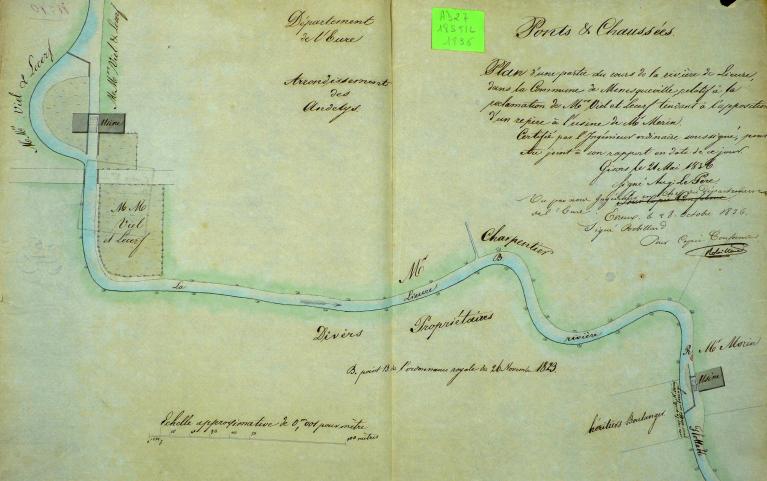 N° 10
Département
de l'Eure
Arrondissement
des
Andelys
AD27
1S51L
1936
Ponts & Chaussées.
Plan d'une partie du cours de la rivière de Lieure,
dans la Commune de Menesqueville relatif à la
réclamation de MM. Viel et Lecerf tendant à l'apposition
d'un repère à l'usine de Mr. Morin.
Certifié par l'Ingénieur ordinaire soussigné, pour
être joint à son rapport en date de ce jour
Gisors le 21 Mai 1836
Signé Aug. Le Père
Vu par nous Ingénieur en Chef du département
de l'Eure.
Pour copie Conforme
Evreux, le 28 octobre 1836.
Signé Robillard
Pour Copie Conforme
Robillard
M. Mrs Viel & Lecerf
M. Mrs Viel & Lecerf
Usine
M M
Viel
et Lecerf
La
Lieure
rivière
Mr
Charpentier
B
Divers
Propriétaires
B. point B de l'ordonnance royale du 26 Novembre 1823
R
Mr Morin
Usine
héritiers Boulanger
Echelle approximative de 0,m 001 pour mètre
100 mètres